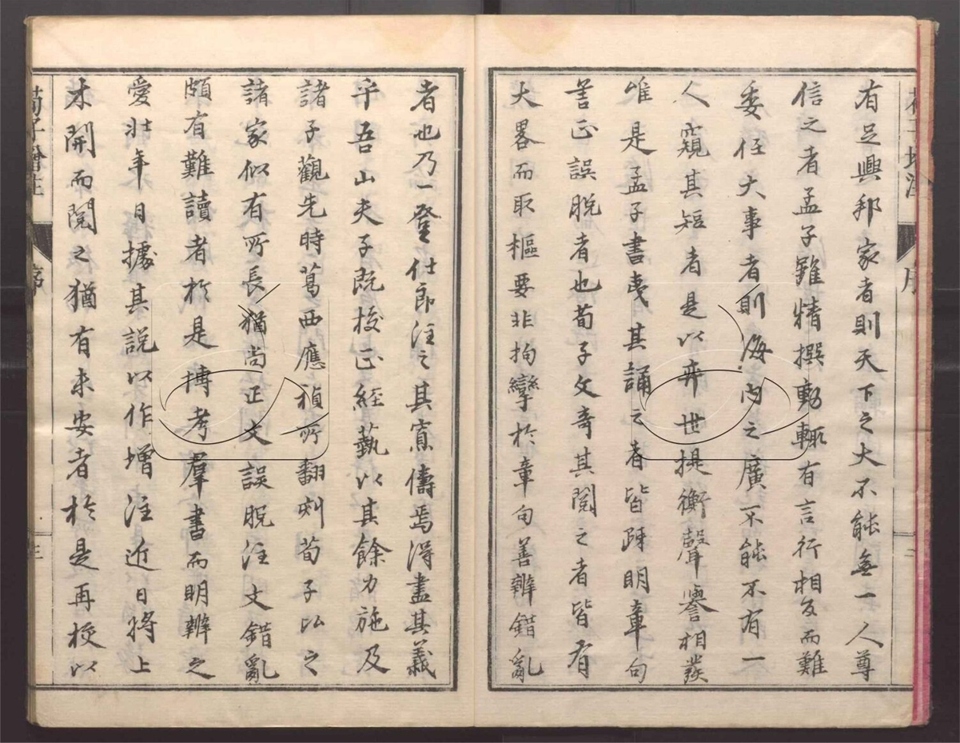 有足興邦家者則天下之大不能無一人尊
信之者孟子雖精撰動輙有言行相反而難
委任大事者則海内之廣不能不有一
人窺其短者是以弈世提衡聲譽相發
唯是孟子書夷其誦之者皆能明章句
善正誤脫者也荀子文奇其閱之者皆有
大畧而取樞要非拘攣於章句善辨錯亂
者也乃一登仕郎注之其寡儔焉得盡其義
乎吾山夫子既挍正經藝以其餘力施及
諸子觀先時葛西應禎所翻刻荀子以之
諸家似有所長猶尚正文誤脫注文錯亂
頗有難讀者於是摶考羣書而明辨之
愛壮年日據其說以作增注近日將上
木開而閱之猶有未安者於是再挍以
荀子增注
序
三